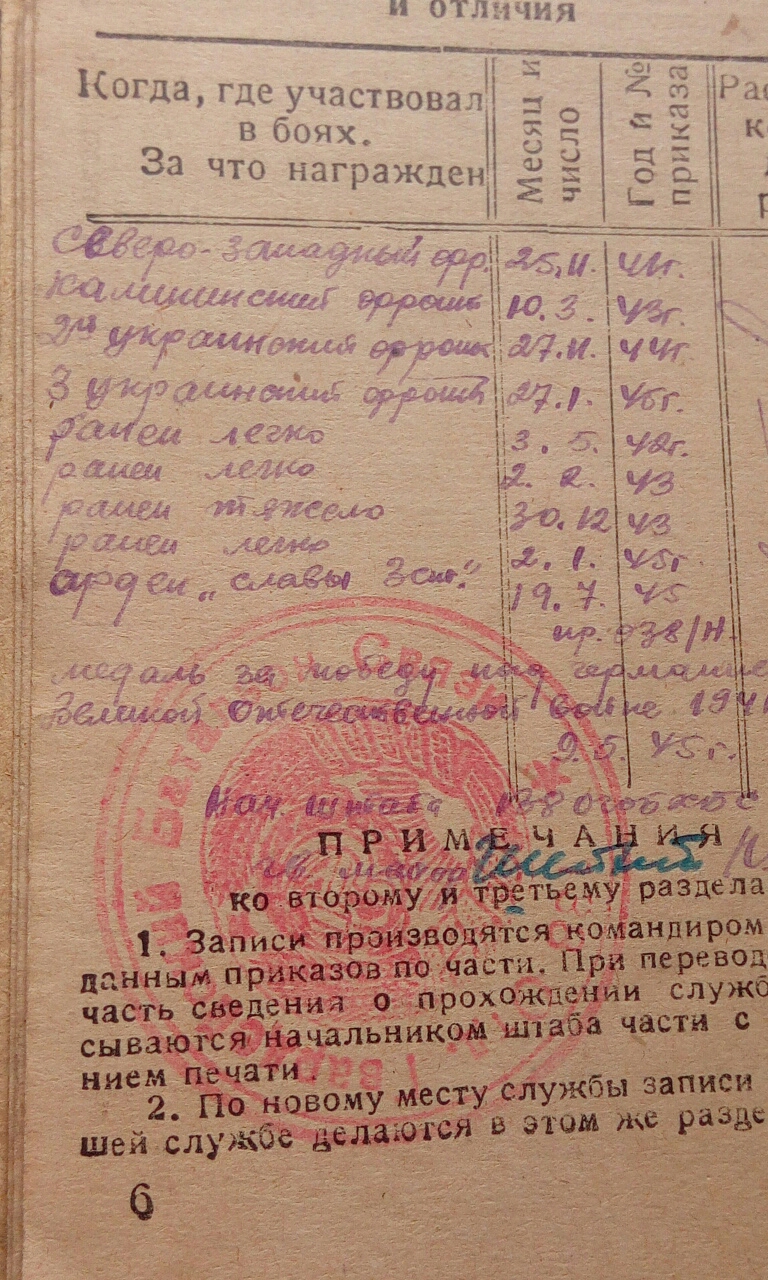 и отличия
Когда, где участвовал в боях. За что награжден
Месяц и число
Год и № приказа
Северо-Западный фр. 25.11. 41г.
Калининский фронт 10.3. 43г.
2й украинский фронт 27.11. 44г.
3 украинский фронт 27.1. 45г.
ранен легко 3. 5. 42г.
ранен легко 2. 2. 43
ранен тяжело 30.12 43
ранен легко 2. 1. 45г.
орден „славы 3 ст." 19. 7. 45
пр. 038/н.
медаль за победу над германие
Великой Отечественной войне 194
9.5. 45г.
Нач. штаба 138
ПРИМЕЧАНИЯ
гв. майор
ко второму и третьему раздела
1. Записи производятся командиром
данным приказов по части. При перевод
часть сведения о прохождении служб
сываются начальником штаба части с
нием печати.
2. По новому месту службы записи
шей службе делаются в этом же разде
6
Батальон Связи